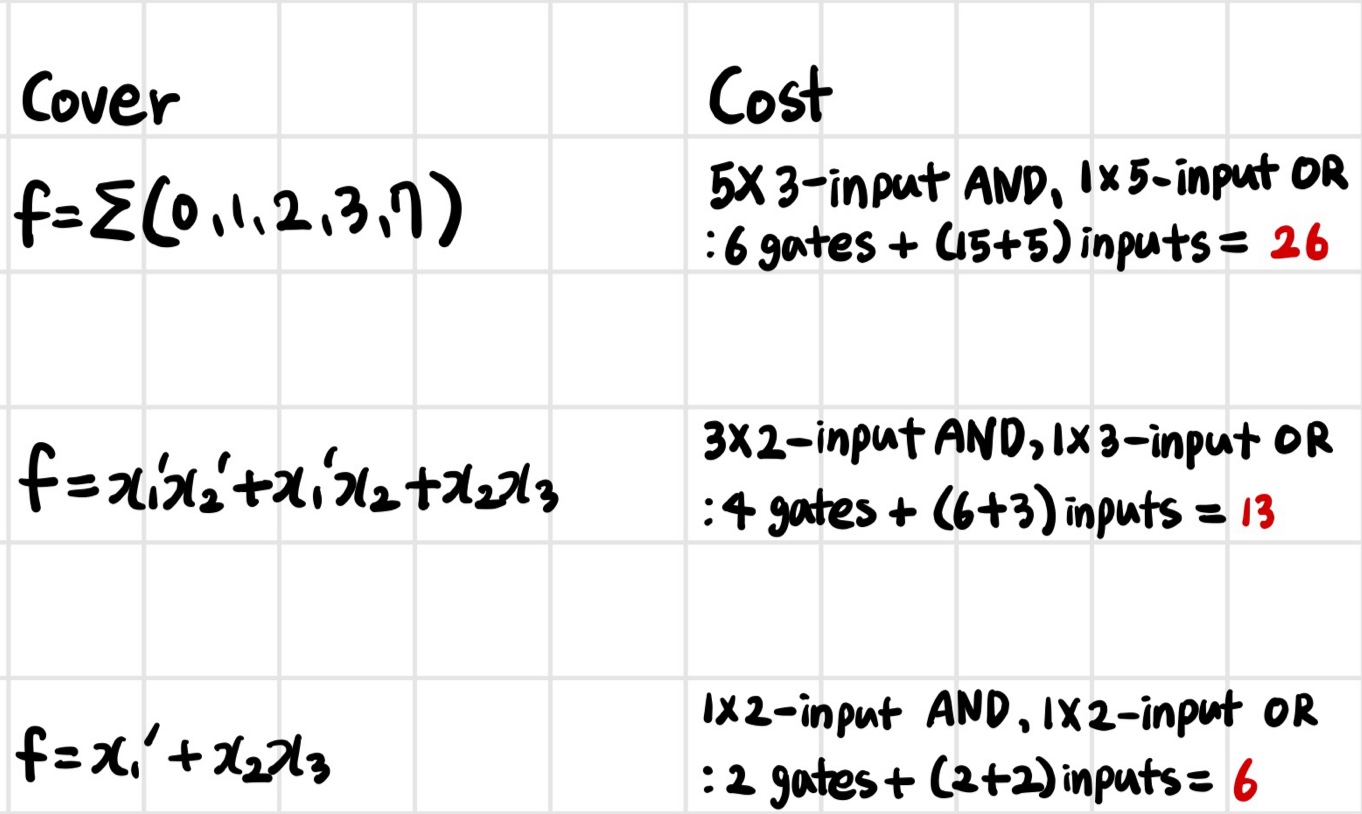 Cover
Cost
f=Σ(0,1,2,3,7)
5X3-input AND, 1x5-input OR
:6 gates + (15+5) inputs = 26
f=x₁'x₂'+x₁'x₂+x₂x₃
3X2-input AND, 1X3-input OR
:4 gates + (6+3) inputs = 13
f=x₁'+x₂x₃
1X2-input AND, 1X2-input OR
:2 gates + (2+2) inputs = 6